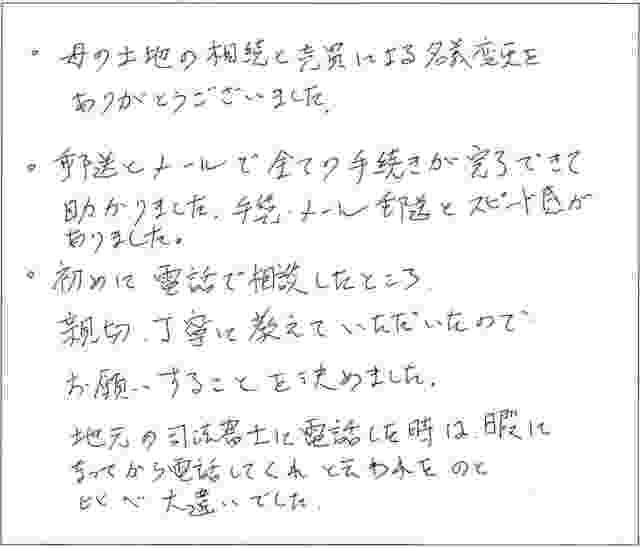 。母の土地の相続と売買による名義変更を
ありがとうございました。
。郵送とメールで全ての手続きが完了できて
助かりました。手続・メール郵送とスピード感が
ありました。
。初めに電話で相談したところ、
親切、丁寧に教えていただいたので
お願いすることを決めました。
地元の司法書士に電話した時は、暇に
なってから電話してくれと云われたのと
比べ大違いでした。